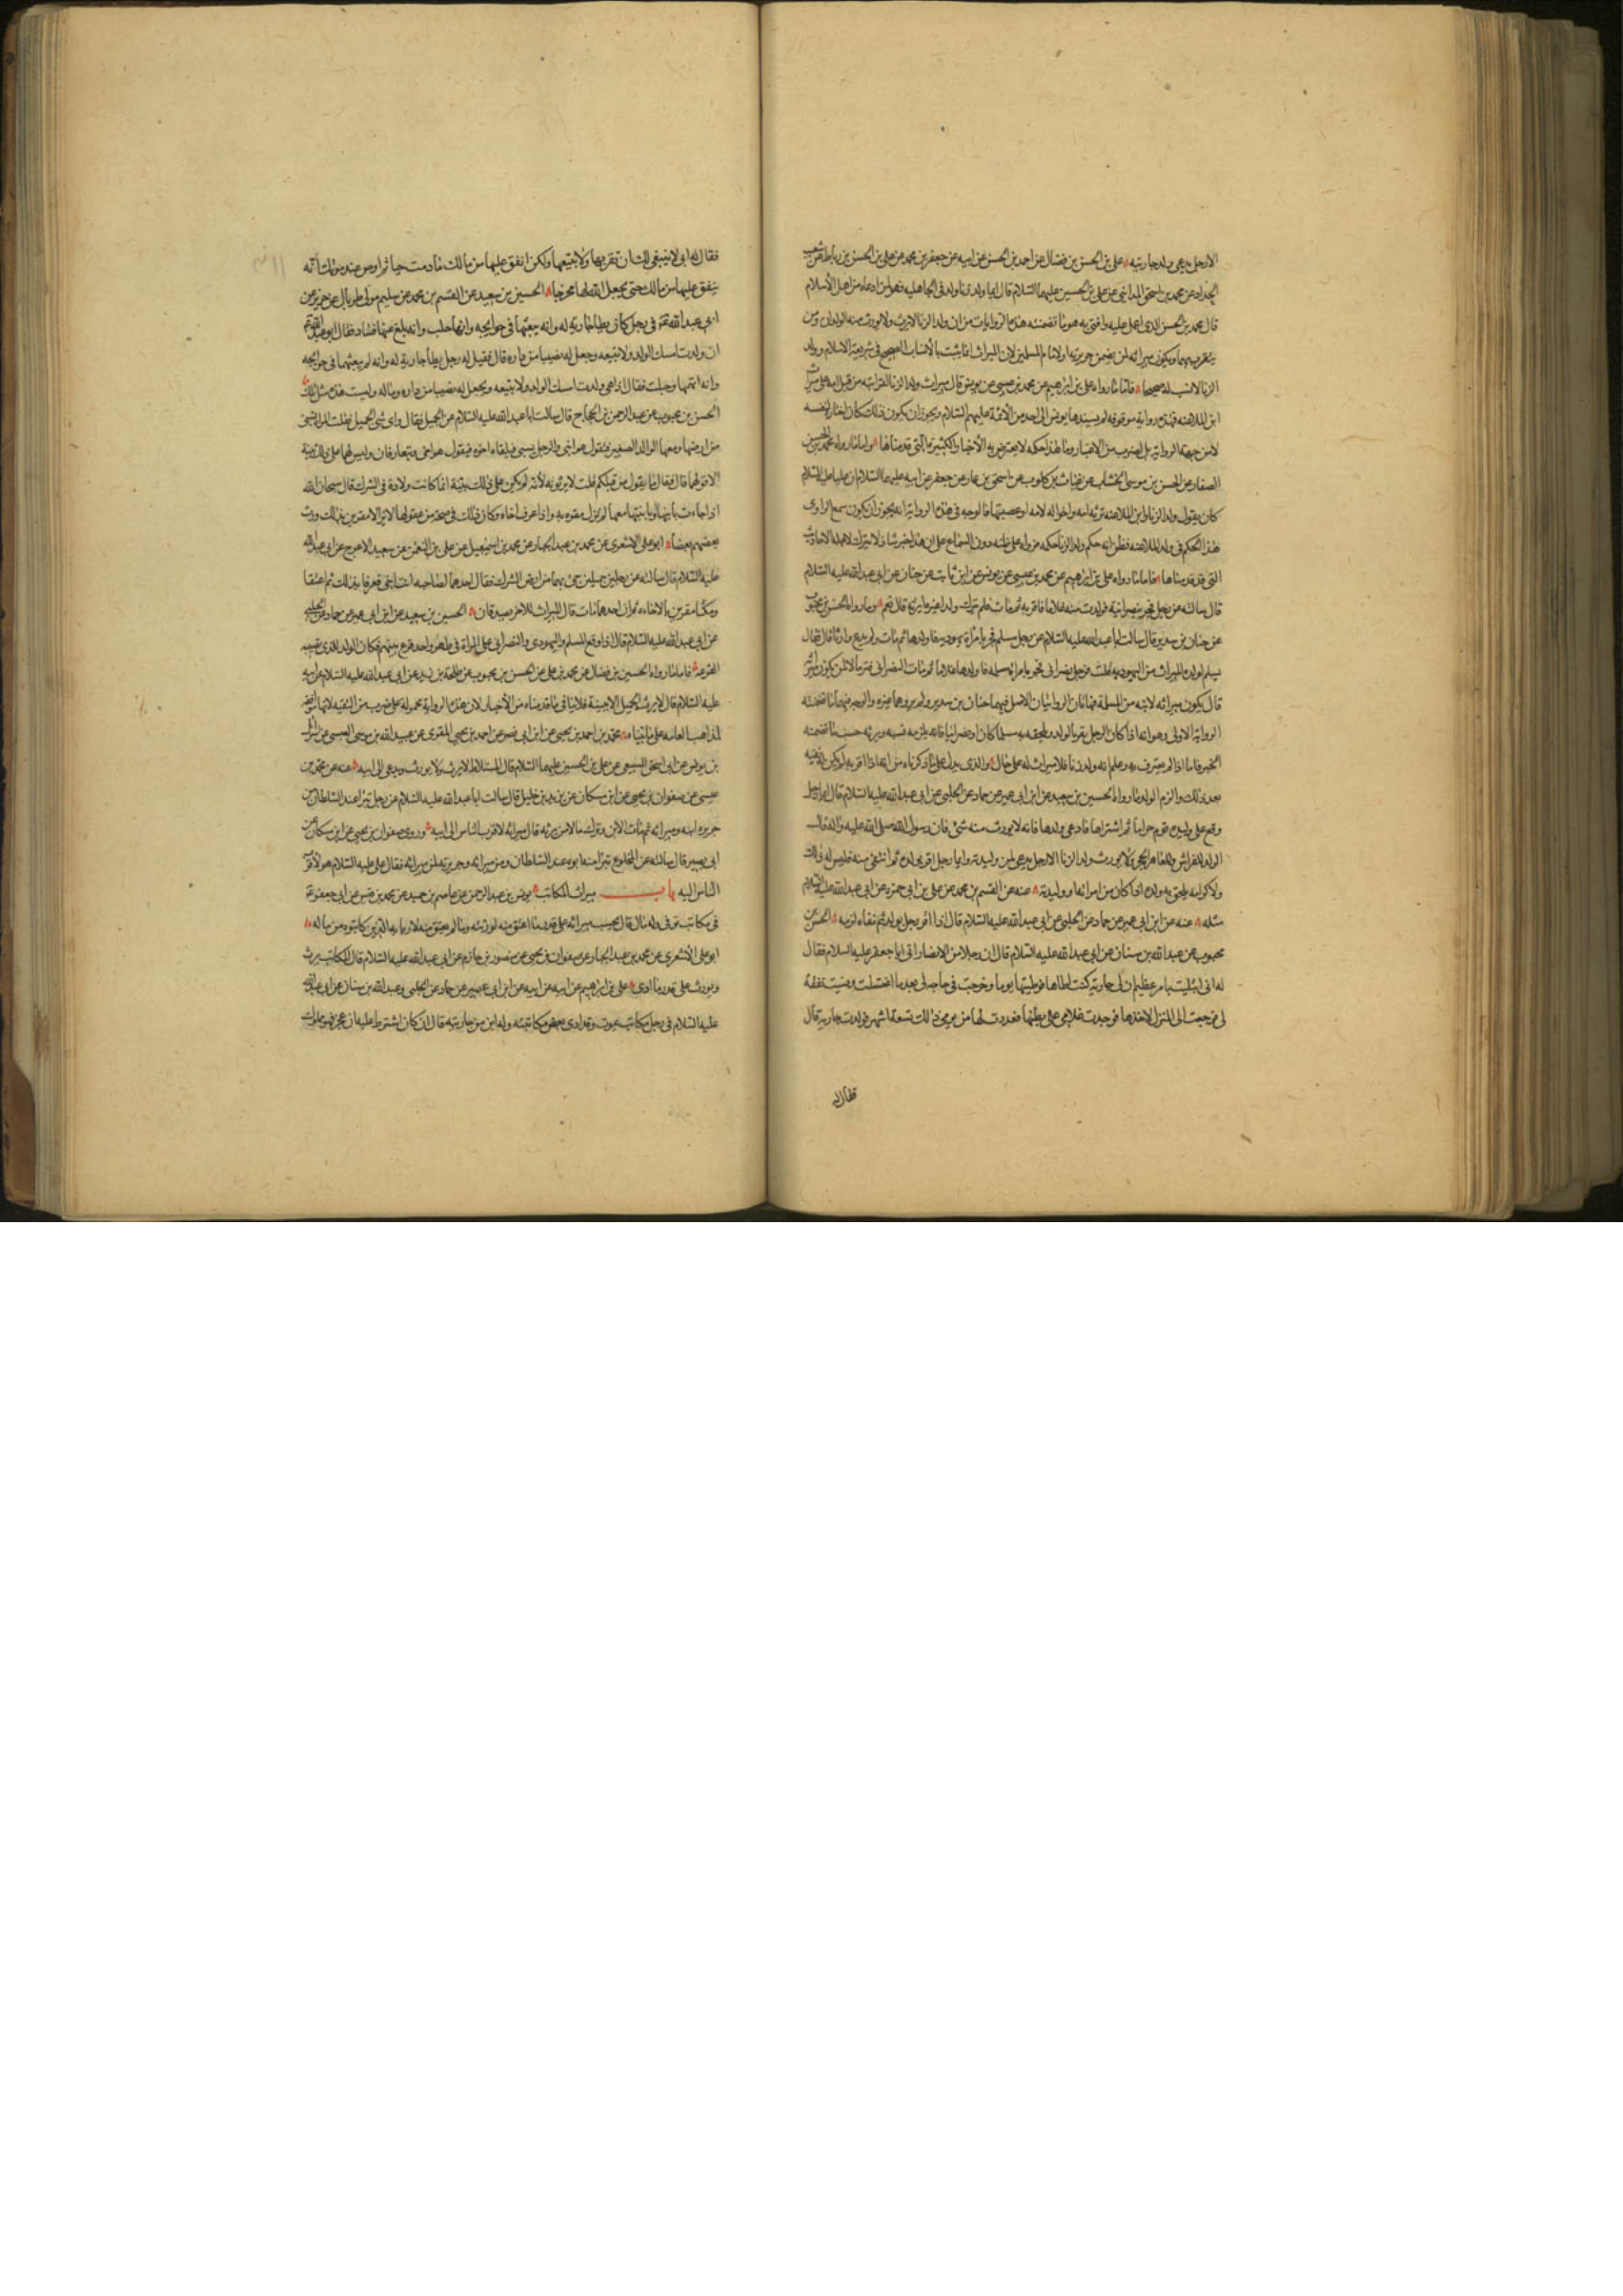 الا رجل يدعي ولد جاريته علي بن الحسن بن فضال عن احمد بن الحسن عن ابيه عن جعفر بن محمد عن علي بن الحسن بن رباط عن شعيب
الحداد عن محمد بن اسحق المدايني عن علي بن الحسين عليهما السلام قال ايما ولد زنا ولد في الجاهليه فهو لمن ادعاه من اهل الاسلام
قال محمد بن الحسن الذي اعمل عليه وافتي به هو ما تضمنته هذه الروايات من ان ولد الزنا لا يرث ولا يورث منه الوالدان ومن
يتقرب بهما ويكون ميراثه لمن يضمن جريرته او لامام المسلمين لان الميراث انما يثبت بالانساب الصحيح في شريعة الاسلام وولد
الزنا لا نسب له صحيحا فاما ما رواه علي بن ابرهيم عن محمد بن عيسى عن يونس قال ميراث ولد الزنا لقرابته من قبل امه على ميراث
ابن الملاعنه فهذه رواية موقوفه لم يسندها يونس الى احد من الائمة عليهم السلام ويجوز ان يكون ذلك كان اختار لنفسه
لا من جهة الرواية بل لضرب من الاعتبار وما هذا حكمه لا يعترض به الاخبار الكثيرة التي قدمناها واما ما رواه محمد بن الحسن
الصفار عن الحسن بن موسى الخشاب عن غياث بن كلوب عن اسحق بن عمار عن جعفر عن ابيه عليهما السلام ان عليا عليه السلام
كان يقول ولد الزنا وابن الملاعنه ترثه امه واخواله لامه او عصبتها فالوجه في هذه الرواية انه يجوز ان يكون سمع الراوي
هذا الحكم في ولد الملاعنه فظن انه حكم ولد الزنا حكمه فرواه على ظنه دون السماع على ان هذا خبر شاذ لا يترك لاجله الاحاديث
التي قد قدمناها فاما ما رواه علي بن ابرهيم عن محمد بن عيسى عن يونس عن ابن ثابت عن حنان عن ابي عبد الله عليه السلام
قال سالته عن رجل فجر بنصرانية فولدت منه غلاما فاقر به ثم مات فلم يترك ولدا غيره ايرثه قال نعم وما رواه الحسن بن محبوب
عن حنان بن سدير قال سالت ابا عبد الله عليه السلام عن رجل مسلم فجر بامراة يهوديه فاولدها ثم مات ولم يدع وارثا قال فقال
يسلم لولده الميراث من اليهوديه قلت فرجل نصراني فجر بامراة مسلمه فاولدها غلاما ثم مات النصراني وترك مالا لمن يكون ميراثه
قال يكون ميراثه لابنه من المسلمة فهاتان الروايتان الاصل فيهما حنان بن سدير ولم يروهما غيره والوجه فيهما ما تضمنته
الرواية الاولى وهو انه اذا كان الرجل يقر بالولد ويلحقه به مسلما كان او نصرانيا فانه يلزمه نسبه ويرثه حسب ما تضمنه
الخبر فاما اذا لم يعترف به وعلم انه ولد زنا فلا ميراث له على حال والذي يدل على ما ذكرناه من انه اذا اقر به لم يكن له نفيه
بعد ذلك والزم الولد ما رواه الحسين بن سعيد عن ابن ابي عمير عن حماد عن الحلبي عن ابي عبد الله عليه السلام قال ايما رجل
وقع على وليدة قوم حراما ثم اشتراها فادعى ولدها فانه لا يورث منه شيئ فان رسول الله صلى الله عليه واله قال
الولد للفراش وللعاهر الحجر ولا يورث ولد الزنا الا رجل يدعي ابن وليدته وايما رجل اقر بولده ثم انتفى منه فليس له ذلك
ولا كرامه يلحق به ولده اذا كان من امراته او وليدته عنه عن القسم بن محمد عن علي بن ابي حمزه عن ابي عبد الله عليه السلام
مثله عنه عن ابن ابي عمير عن حماد عن الحلبي عن ابي عبد الله عليه السلام قال اذا اقر رجل بولد ثم نفاه لزمه الحسن بن
محبوب عن عبد الله بن سنان عن ابي عبد الله عليه السلام قال ان رجلا من الانصار اتى ابا جعفر عليه السلام فقال
له اني ابتليت بامر عظيم ان لي جارية كنت اطاها فوطيتها يوما وخرجت في حاجة لي بعد ما اغتسلت ونسيت نفقة
لي فرجعت الى المنزل لاخذها فوجدت غلامي على بطنها فعددت لها من يومي ذلك تسعة اشهر فولدت جارية قال
فقال له
فقال له ابي لا ينبغي لك ان تقربها ولا تبيعها ولكن انفق عليها من مالك ما دمت حيا ثم اوص عند موتك انه
ينفق عليها من مالك حتى يجعل الله لها مخرجا الحسين بن سعيد عن القسم بن محمد عن سليم مولى طربال عن حريز عن
ابي عبد الله في رجل كان يطا جارية له وانه يبعثها في حوايجه وانها حبلت وانه بلغ عنها فساد فقال ابو عبد الله
ان ولدت امسك الولد ولا يبيعه وجعل له نصيبا من داره قال فقيل له رجل يطا جارية له وانه لم يبعثها في حوايجه
وانه اتهمها وحبلت فقال اذا هي ولدت امسك الولد ولا يبيعه ويجعل له نصيبا من داره وماله وليست هذه مثل تلك
الحسن بن محبوب عن عبد الرحمن بن الحجاج قال سالت ابا عبد الله عليه السلام عن الحميل فقال واي شي الحميل فقلت المراة تسبى
من ارضها ومعها الولد الصغير فتقول هو ابني والرجل يسبى فيلقاه اخوه فيقول هو اخي ويتعارفان وليس لهما على ذلك بينة
الا قولهما قال فقال فما يقول من قبلكم قلت لا يورثونه لانه لم يكن على ذلك بينة انما كانت ولادة في الشرك قال سبحان الله
اذا جاءت بابنها او بابنتها معها لم تزل مقره به واذا عرف اخاه وكان ذلك في صحة من عقولهما لا يزالان مقرين بذلك ورث
بعضهم بعضا ابو علي الاشعري عن محمد بن عبد الجبار عن محمد بن اسمعيل عن علي بن النعمن عن سعيد الاعرج عن ابي عبد الله
عليه السلام قال سالته عن رجلين حميلين جئ بهما من ارض الشرك فقال احدهما لصاحبه انت اخي فعرفا بذلك ثم اعتقا
ومكثا مقرين بالاخاء ثم ان احدهما مات قال الميراث للاخر يصدقان الحسين بن سعيد عن ابن ابي عمير عن حماد عن الحلبي
عن ابي عبد الله عليه السلام قال اذا وقع المسلم واليهودي والنصراني على المراة في طهر واحد قرع بينهم فكان الولد للذي تصيبه
القرعة فاما ما رواه الحسين بن فضال عن محمد بن علي عن الحسن بن محبوب عن طلحة بن زيد عن ابي عبد الله عليه السلام عن ابيه
عليه السلام قال لا يرث الحميل الا ببينة فلا ينافي ما قدمناه من الاخبار لان هذه الرواية محمولة على ضرب من التقيه لانها توافق
لمذاهب العامه على ما بيناه محمد بن احمد بن يحيى عن ابن ابي نصر عن احمد بن يحيى المقري عن عبيد الله بن موسى العبسي عن
بن يونس عن ابي اسحق السبيعي عن علي بن الحسين عليهما السلام قال المستلاط لا يرث ولا يورث ويدعى الى ابيه عنه عن محمد بن
عيسى عن صفوان بن يحيى عن ابن مسكان عن يزيد بن خليل قال سالت ابا عبد الله عليه السلام عن رجل تبرا عند السلطان من
جريرة ابنه وميراثه ثم مات الابن وترك مالا من يرثه قال ميراثه لاقرب الناس الى ابيه وروى صفوان بن يحيى عن ابن مسكان عن
ابي بصير قال سالته عن المخلوع تبرا منه ابوه عند السلطان ومن ميراثه وجريرته لمن ميراثه فقال علي عليه السلام هو لاقرب
الناس اليه باب ميراث المكاتب يونس بن عبد الرحمن عن عاصم بن حميد عن محمد بن قيس عن ابي جعفر
في مكاتب توفي وله مال قال يحسب ميراثه على قدر ما اعتق منه لورثته وما لم يعتق منه لاربابه الذين كاتبوه من ماله
ابو علي الاشعري عن محمد بن عبد الجبار عن صفوان بن يحيى عن منصور بن حازم عن ابي عبد الله عليه السلام قال المكاتب يرث
ويورث على قدر ما ادى علي بن ابرهيم عن ابيه عن ابن ابي عمير عن حماد عن الحلبي وعبد الله بن سنان عن ابي عبد الله
عليه السلام في رجل مكاتب يموت وقد ادى بعض مكاتبته وله ابن من جاريته قال ان كان اشترط عليه ان عجز فهو مملوك